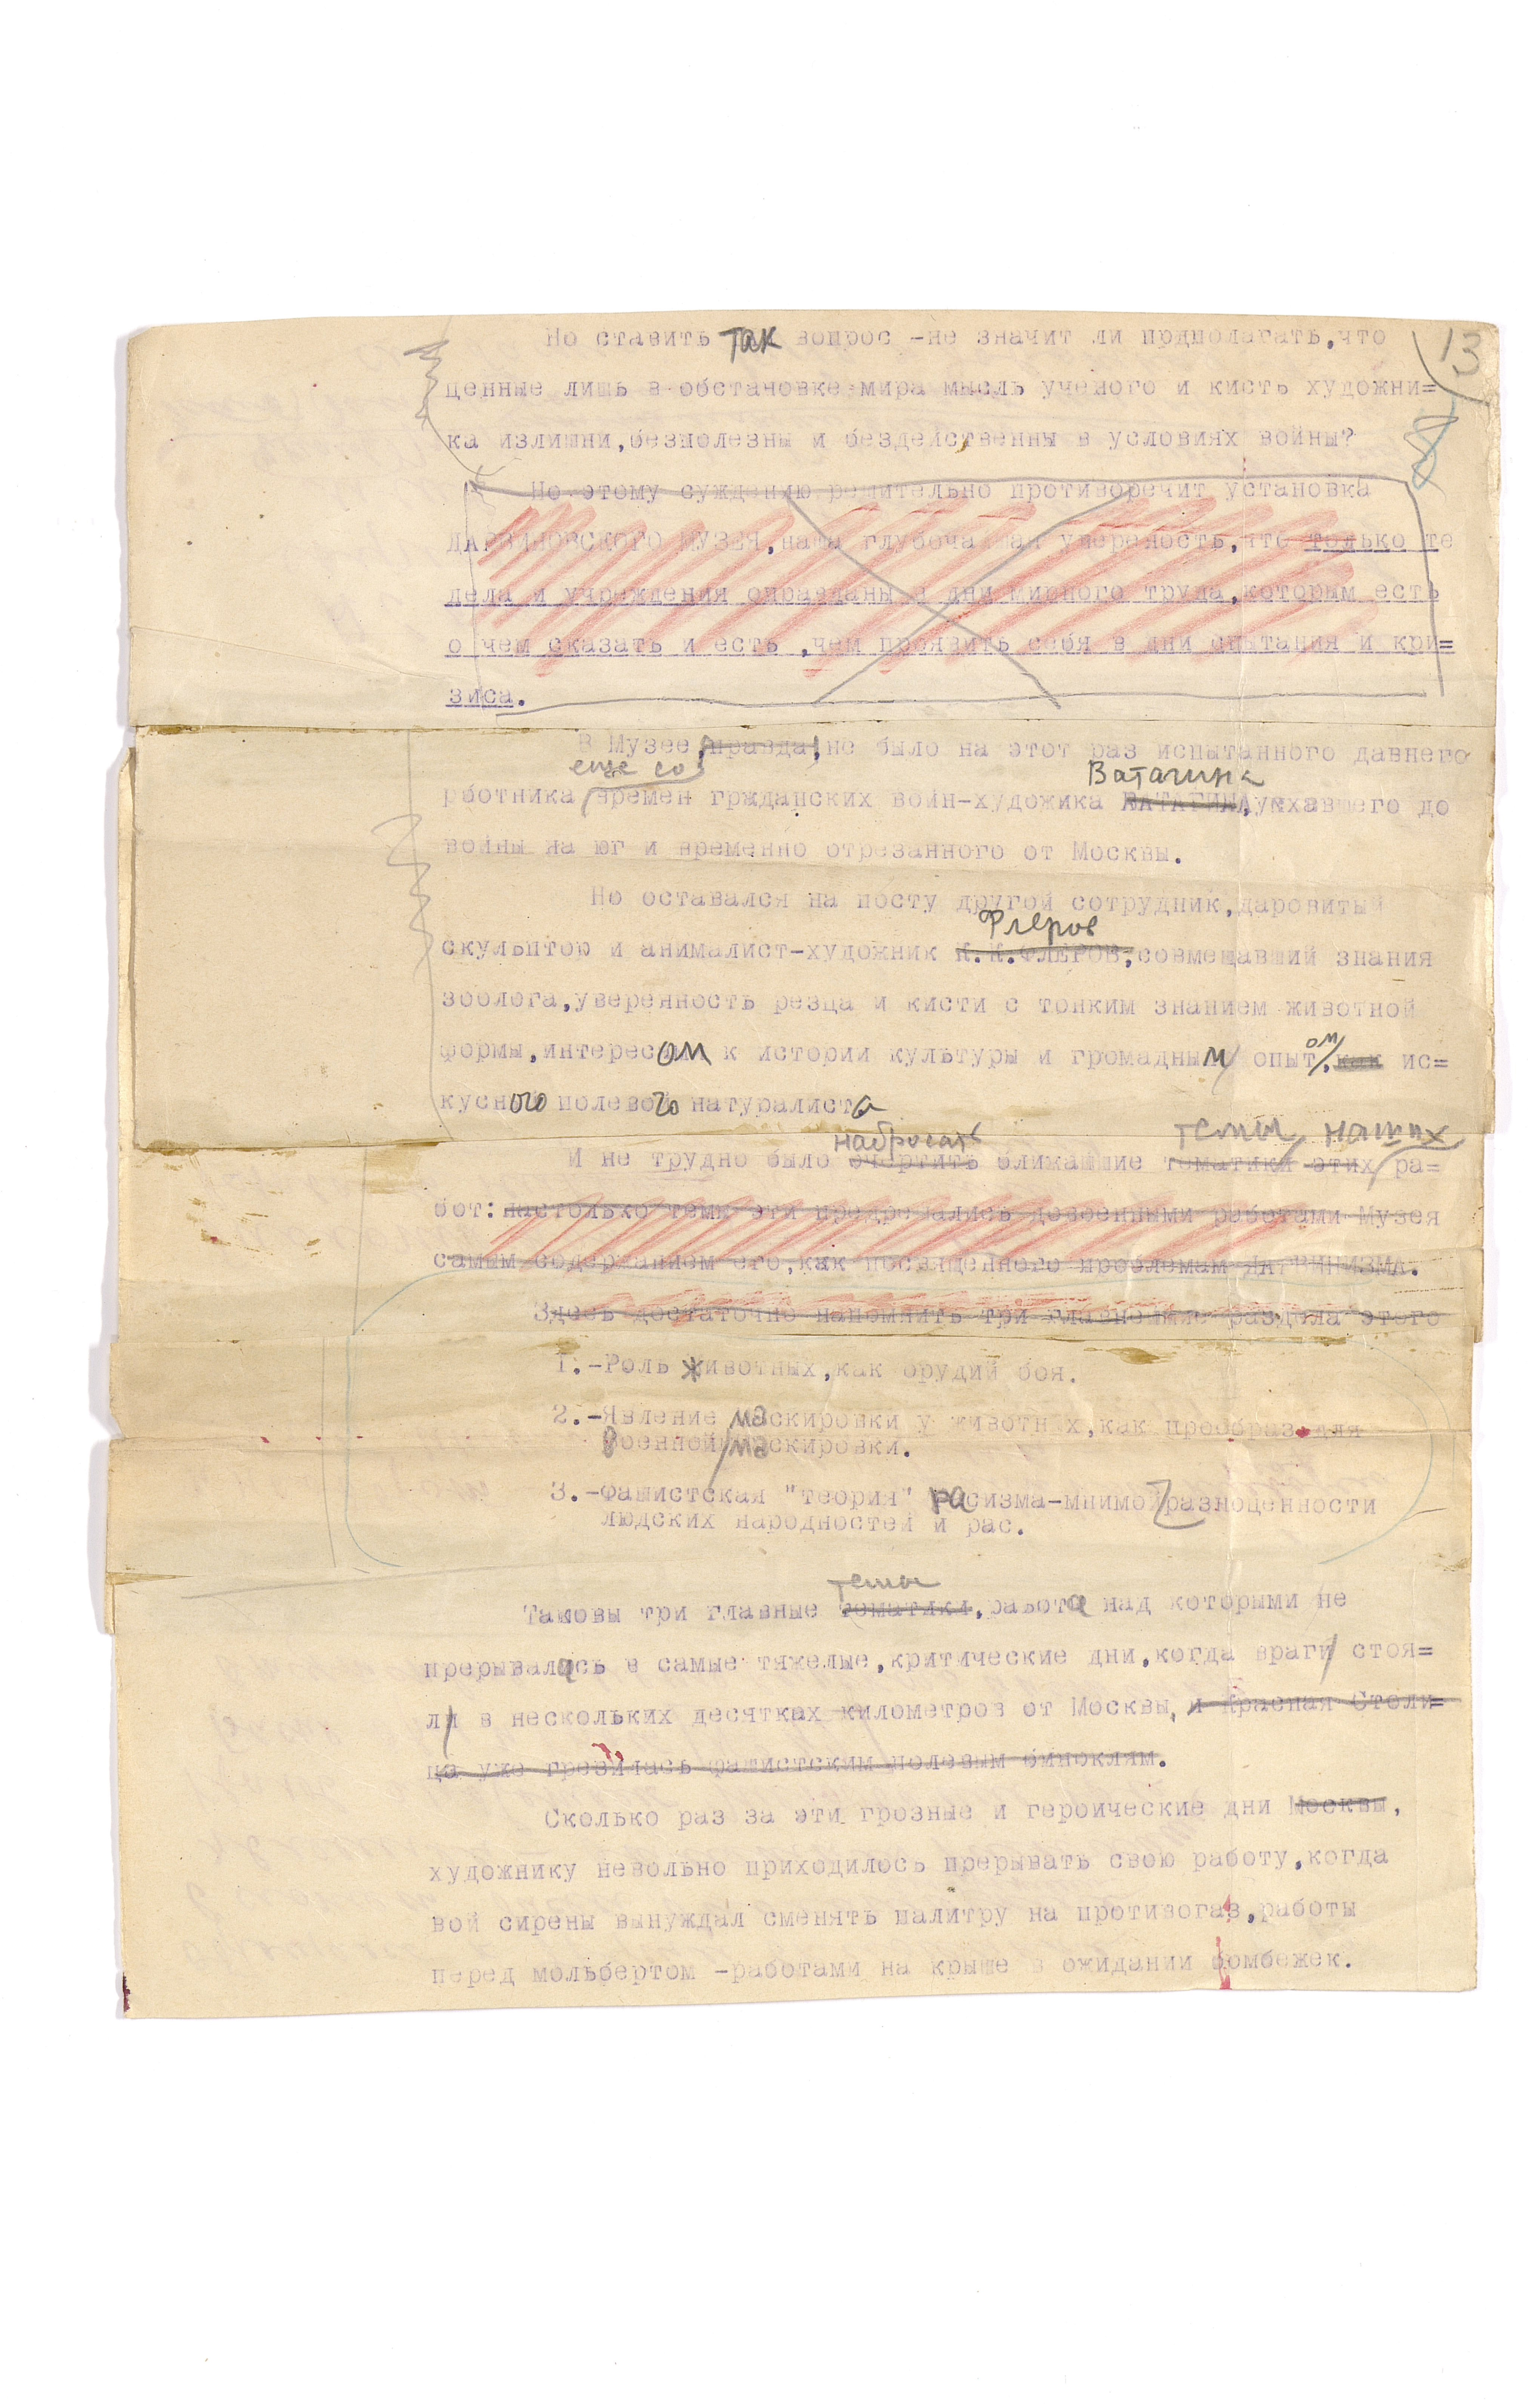 13
8
Но ставить так вопрос -не значит ли прдполагать,что
ценные лишь в обстановке мира мысль ученого и кисть художни=
ка излишни,безполезны и бездейственны в условиях войны?
Но этому суждению решительно противоречит установка
ДАРВИНОВСКОГО МУЗЕЯ,наша глубочайшая уверенность,что только те
дела и учреждения оправданы в дни мирного труда,которым есть
о чем сказать и есть ,чем проявить себя в дни опытания и кри=
зиса.
В Музее,правда,не было на этот раз испытанного давнего
еще со Ватагина
рботника времен гржданских войн-художика ВАТАГИНА,уехавшего до
войны на юг и временно отрезанного от Москвы.
Но оставался на посту другой сотрудник,даровитый
Флеров
скульптор и анималист-художник К.К.ФЛЕРОВ,совмещавший знания
зоолога,уверенность резца и кисти с тонким знанием животной
формы,интересом к истории культуры и громадным опытом,как ис=
кусного полевого натуралиста
набросать темы наших
И не трудно было очертить ближайшие тематики этих ра=
бот:настолько темы эти предрешались довоенными работами Музея
самым содержанием его,как посвященного проблемам ДАРВИНИЗМА.
Здесь достаточно напомнить три главнейшие раздела этого
1.-Роль животных,как орудий боя.
2.-Явление маскировки у животных,как прообраз для
военной маскировки.
3.-Фашистская "теория" расизма-мнимой разноценности
людских народностей и рас.
темы
Таковы три главные тематики,работа над которыми не
прерывалась в самые тяжелые,критические дни,когда враги стоя=
ли в нескольких десятках километров от Москвы, и Красная Столи=
ца уже грезилась фашистским полевым биноклям.
Сколько раз за эти грозные и героические дни Москвы,
художнику невольно приходилось прерывать свою работу,когда
вой сирены вынуждал сменять палитру на противогаз,работы
перед мольбертом -работами на крыше в ожидании бомбежек.